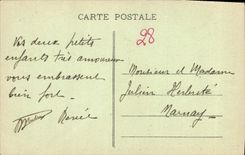 CARTE POSTALE
28
Vos deux petits
enfants très amoureux
vous embrassent
bien fort.
Renée
Monsieur et Madame
Julien
Marnay